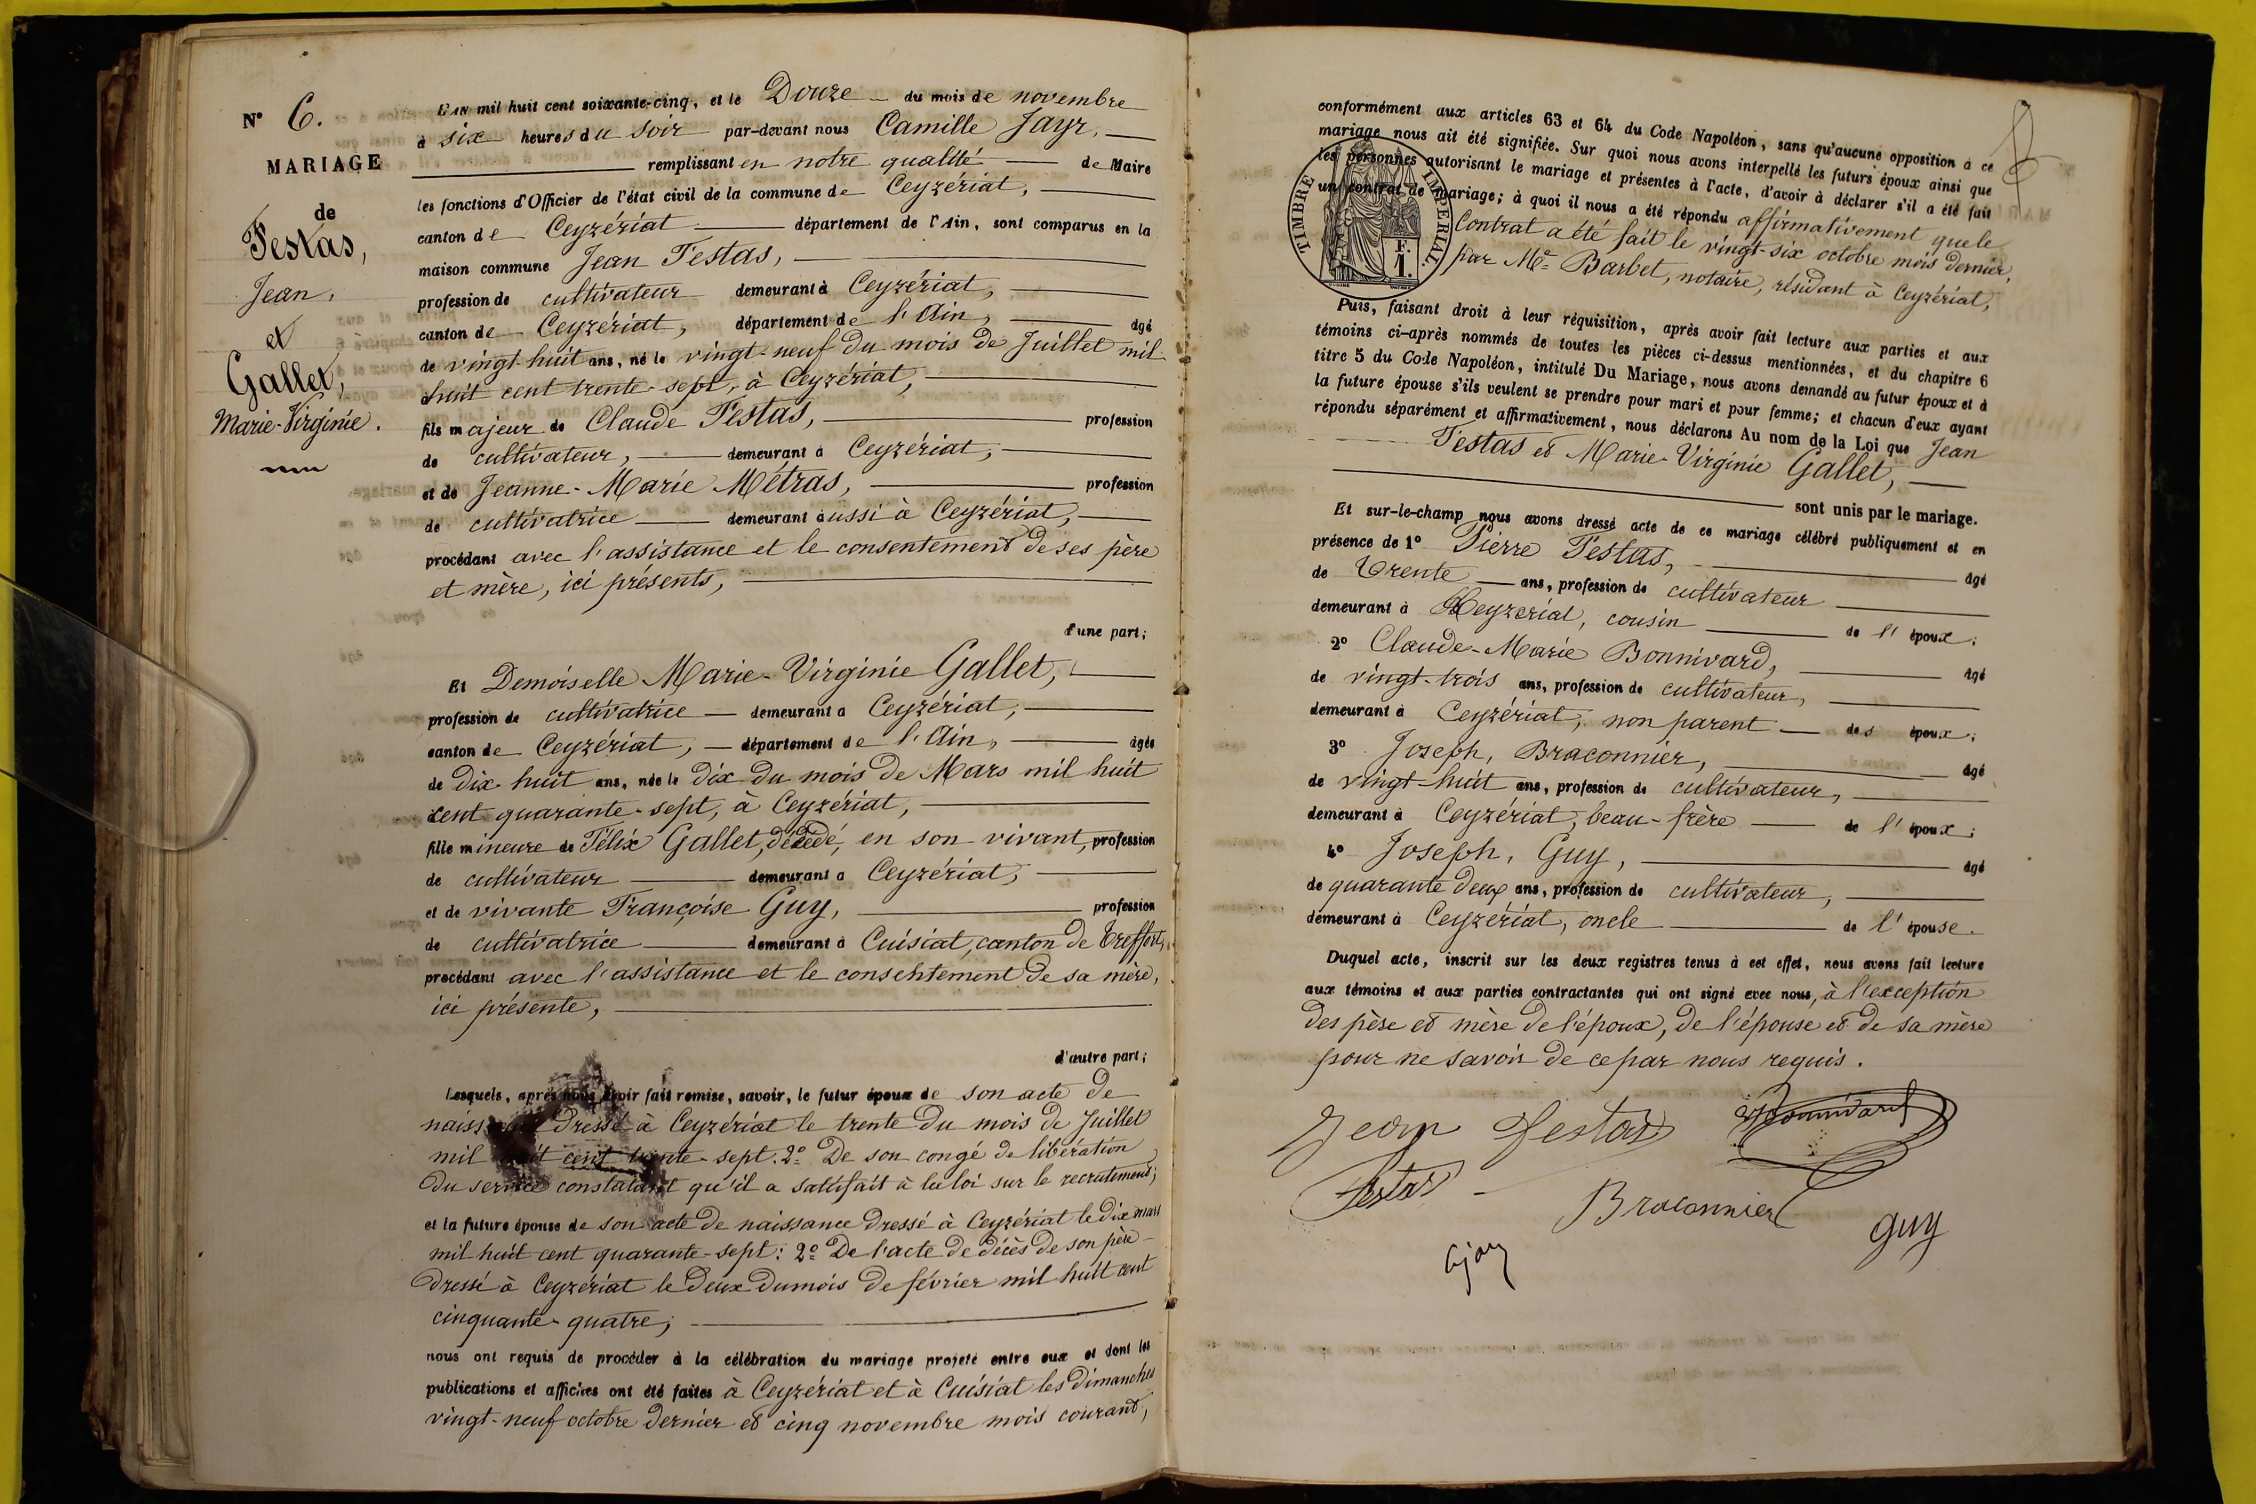 N° 6.
MARIAGE
de
Festas,
Jean,
et
Gallet,
Marie-Virginie.
L'AN mil huit cent soixante-cinq, et le Douze du mois de novembre
à six heures du soir par-devant nous Camille Jayr,
remplissant en notre qualité de Maire
les fonctions d'Officier de l'état civil de la commune de Ceyzériat,
canton de Ceyzériat département de l'Ain, sont comparus en la
maison commune Jean Festas,
profession de cultivateur demeurant à Ceyzériat,
canton de Ceyzériat, département de l'Ain, âgé
de vingt-huit ans, né le vingt-neuf du mois de Juillet mil
huit cent trente-sept, à Ceyzériat,
fils majeur de Claude Festas, profession
de cultivateur, demeurant à Ceyzériat,
et de Jeanne-Marie Métras, profession
de cultivatrice demeurant aussi à Ceyzériat,
procédant avec l'assistance et le consentement de ses père
et mère, ici présents,
d'une part;
Et Demoiselle Marie-Virginie Gallet,
profession de cultivatrice demeurant à Ceyzériat,
canton de Ceyzériat, département de l'Ain, âgée
de dix-huit ans, née le dix du mois de Mars mil huit
cent quarante-sept, à Ceyzériat,
fille mineure de Félix Gallet, décédé, en son vivant, profession
de cultivateur demeurant à Ceyzériat,
et de vivante Françoise Guy, profession
de cultivatrice demeurant à Cuisiat, canton de Treffort,
procédant avec l'assistance et le consentement de sa mère,
ici présente,
d'autre part;
Lesquels, après nous avoir fait remise, savoir, le futur époux de son acte de
dressé à Ceyzériat le trente du mois de Juillet
mil cent trente-sept. 2° De son congé de libération
du service constatant qu'il a satisfait à la loi sur le recrutement;
et la future épouse de son acte de naissance dressé à Ceyzériat le dix mars
mil huit cent quarante-sept: 2° De l'acte de décès de son père
dressé à Ceyzériat le deux du mois de février mil huit cent
cinquante-quatre,
nous ont requis de procéder à la célébration du mariage projeté entre eux et dont les
publications et affiches ont été faites à Ceyzériat et à Cuisiat les dimanches
vingt-neuf octobre dernier et cinq novembre mois courant,
conformément aux articles 63 et 64 du Code Napoléon, sans qu'aucune opposition à ce
mariage nous ait été signifiée. Sur quoi nous avons interpellé les futurs époux ainsi que
les personnes autorisant le mariage et présentes à l'acte, d'avoir à déclarer s'il a été fait
un contrat de mariage; à quoi il nous a été répondu affirmativement que le
TIMBRE IMPÉRIAL.
F.
1.
Contrat a été fait le vingt-six octobre mois dernier,
par Me Barbet, notaire, résidant à Ceyzériat,
Puis, faisant droit à leur réquisition, après avoir fait lecture aux parties et aux
témoins ci-après nommés de toutes les pièces ci-dessus mentionnées, et du chapitre 6
titre 5 du Code Napoléon, intitulé Du Mariage, nous avons demandé au futur époux et à
la future épouse s'ils veulent se prendre pour mari et pour femme; et chacun d'eux ayant
répondu séparément et affirmativement, nous déclarons Au nom de la Loi que Jean
Festas et Marie-Virginie Gallet,
sont unis par le mariage.
Et sur-le-champ nous avons dressé acte de ce mariage célébré publiquement et en
présence de 1° Pierre Festas, âgé
de Trente ans, profession de cultivateur
demeurant à Ceyzériat, cousin de l'époux;
2° Claude-Marie Bonnivard, âgé
de vingt-trois ans, profession de cultivateur,
demeurant à Ceyzériat, non parent des époux;
3° Joseph, Braconnier, âgé
de vingt-huit ans, profession de cultivateur,
demeurant à Ceyzériat, beau-frère de l'époux;
4° Joseph, Guy, âgé
de quarante deux ans, profession de cultivateur,
demeurant à Ceyzériat, oncle de l'épouse.
Duquel acte, inscrit sur les deux registres tenus à cet effet, nous avons fait lecture
aux témoins et aux parties contractantes qui ont signé avec nous, à l'exception
des père et mère de l'époux, de l'épouse et de sa mère
pour ne savoir de ce par nous requis.
Jean Festas Bonnivard
Festas
Braconnier
guy